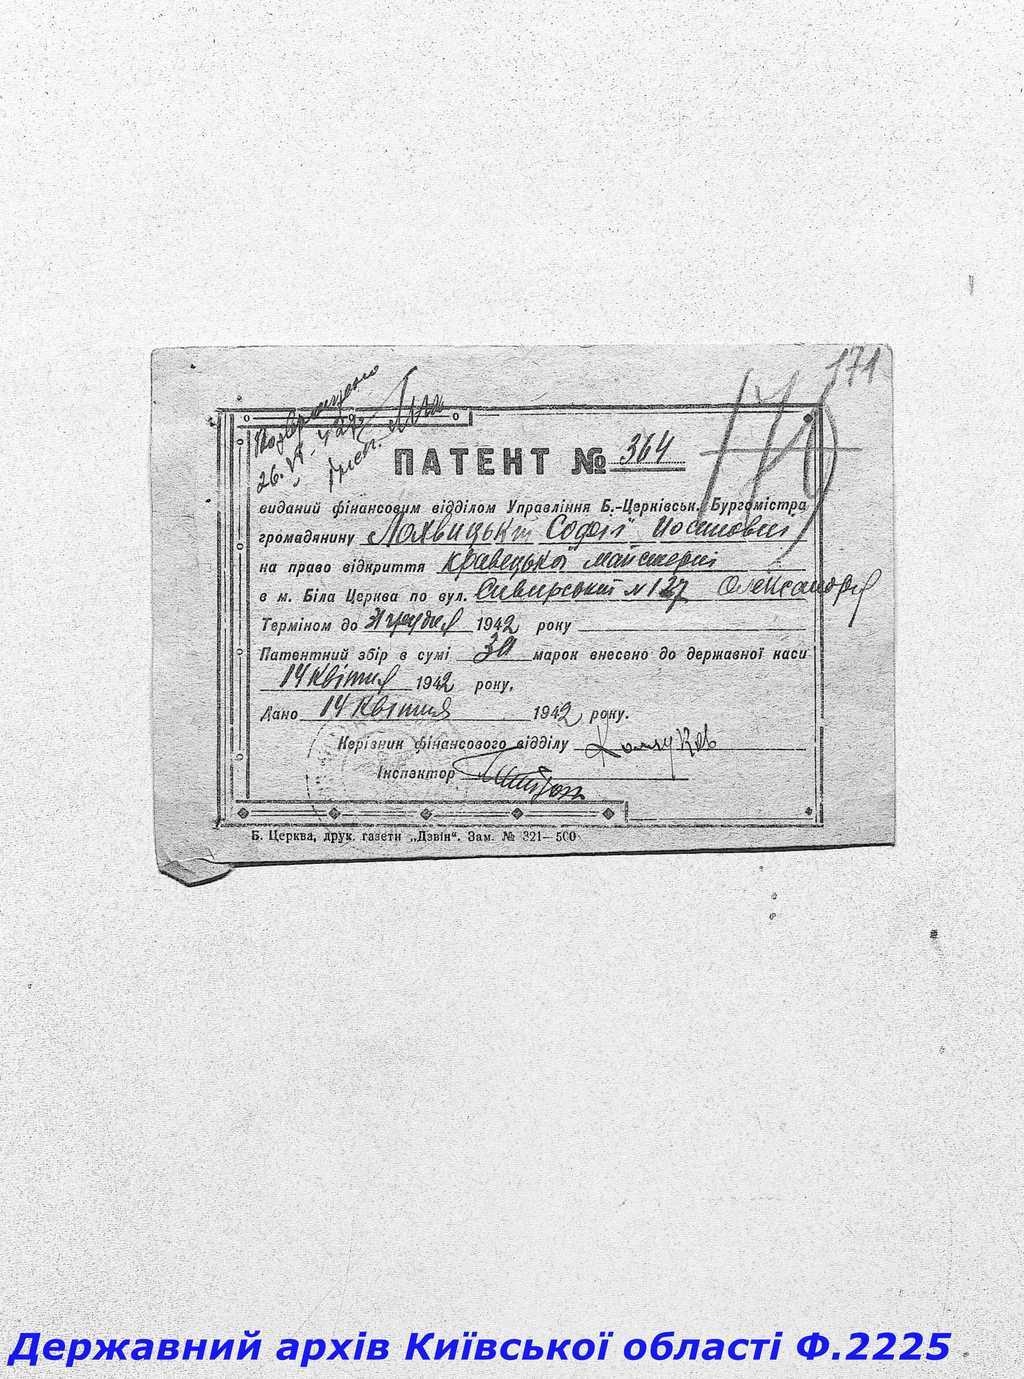 171
170
26.VI-42
ПАТЕНТ № 364
виданий фінансовим відділом Управління Б.-Церківськ. Бургомістра
громадянину Лохвицькій Софії Йосиповні
на право відкриття кравецької майстерні
в м. Біла Церква по вул. Сквирський № 127
Терміном до 31 грудня 1942 року
Патентний збір в сумі 30 марок внесено до державної каси
14 Квітня 1942 року.
Дано 14 Квітня 1942 року.
Керізник фінансового відділу
Інспектор
Б. Церква, друк. газети „Дзвін“. Зам. № 321—500
Державний архів Київської області Ф.2225